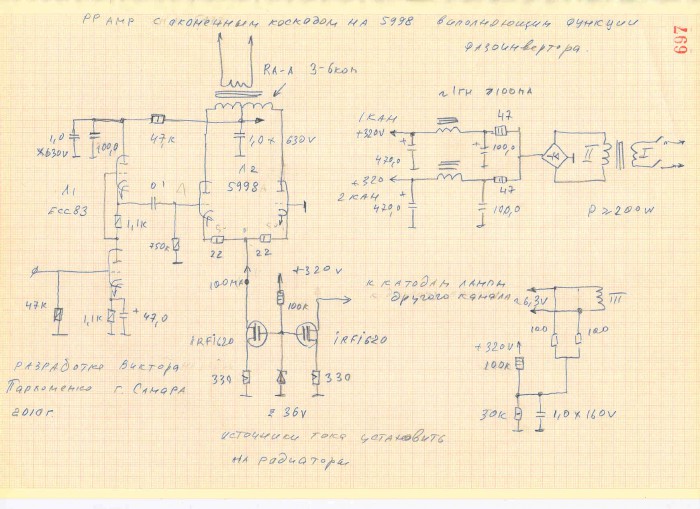 PP AMP с оконечным каскодом на 5998 выполняющим функции
фазоинвертора.
697
RA-A 3-6ком
~1гн >100ма
1,0
x630v
100,0
47к
1,0 x 630v
Л2
5998
Л1
ECC83
0 1
1,1к
750к
22
22
47к
1,1к
+ 47,0
100ма
+320v
100к
IRFi620
iRFi620
330
330
z 36v
к катодам лампы
другого канала
1 КАН
+320v
47
+
470,0
+
100,0
+320
2 КАН
47
+
470,0
100,0
II
I
P≥200W
~6,3v
III
100
100
+320v
100к
30к
1,0 x 160v
разработка Виктора
Пархоменко г. Самара
2010г
источники тока установить
на радиаторы